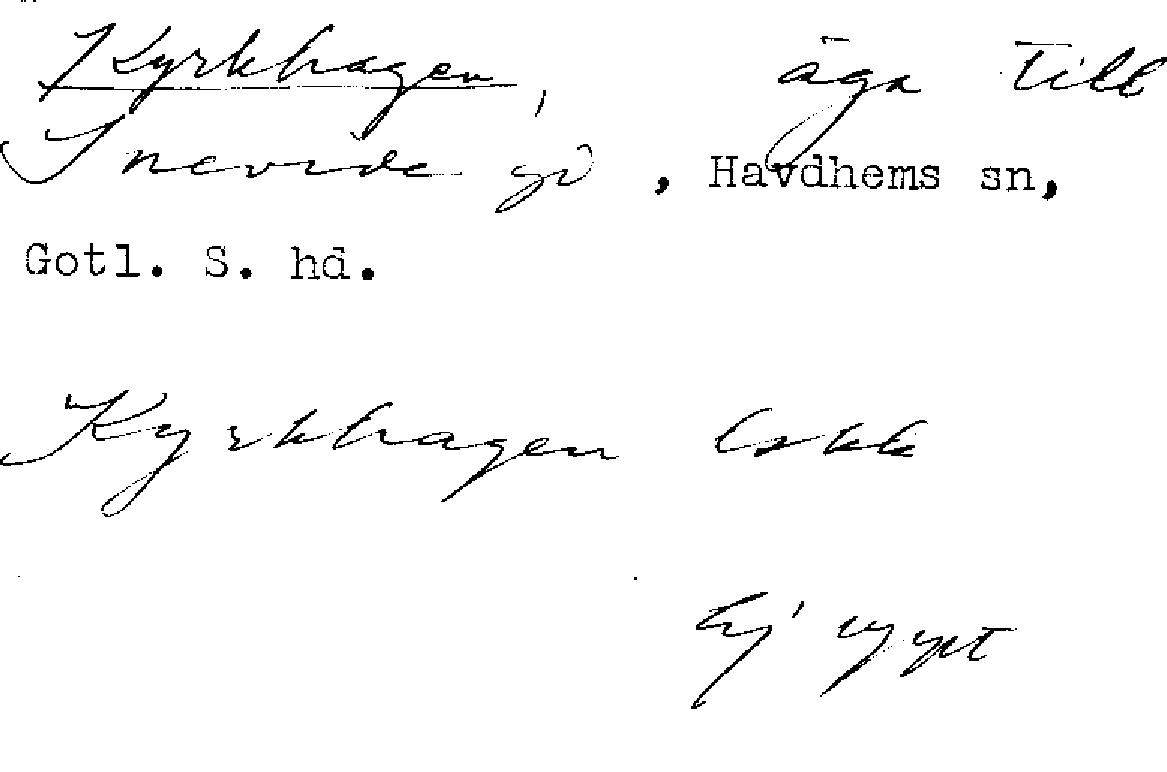 Kyrkhagen, äga till
Snevide gd, Havdhems sn,
Gotl. S. hd.
Kyrkhagen Lskk
Ej uppt